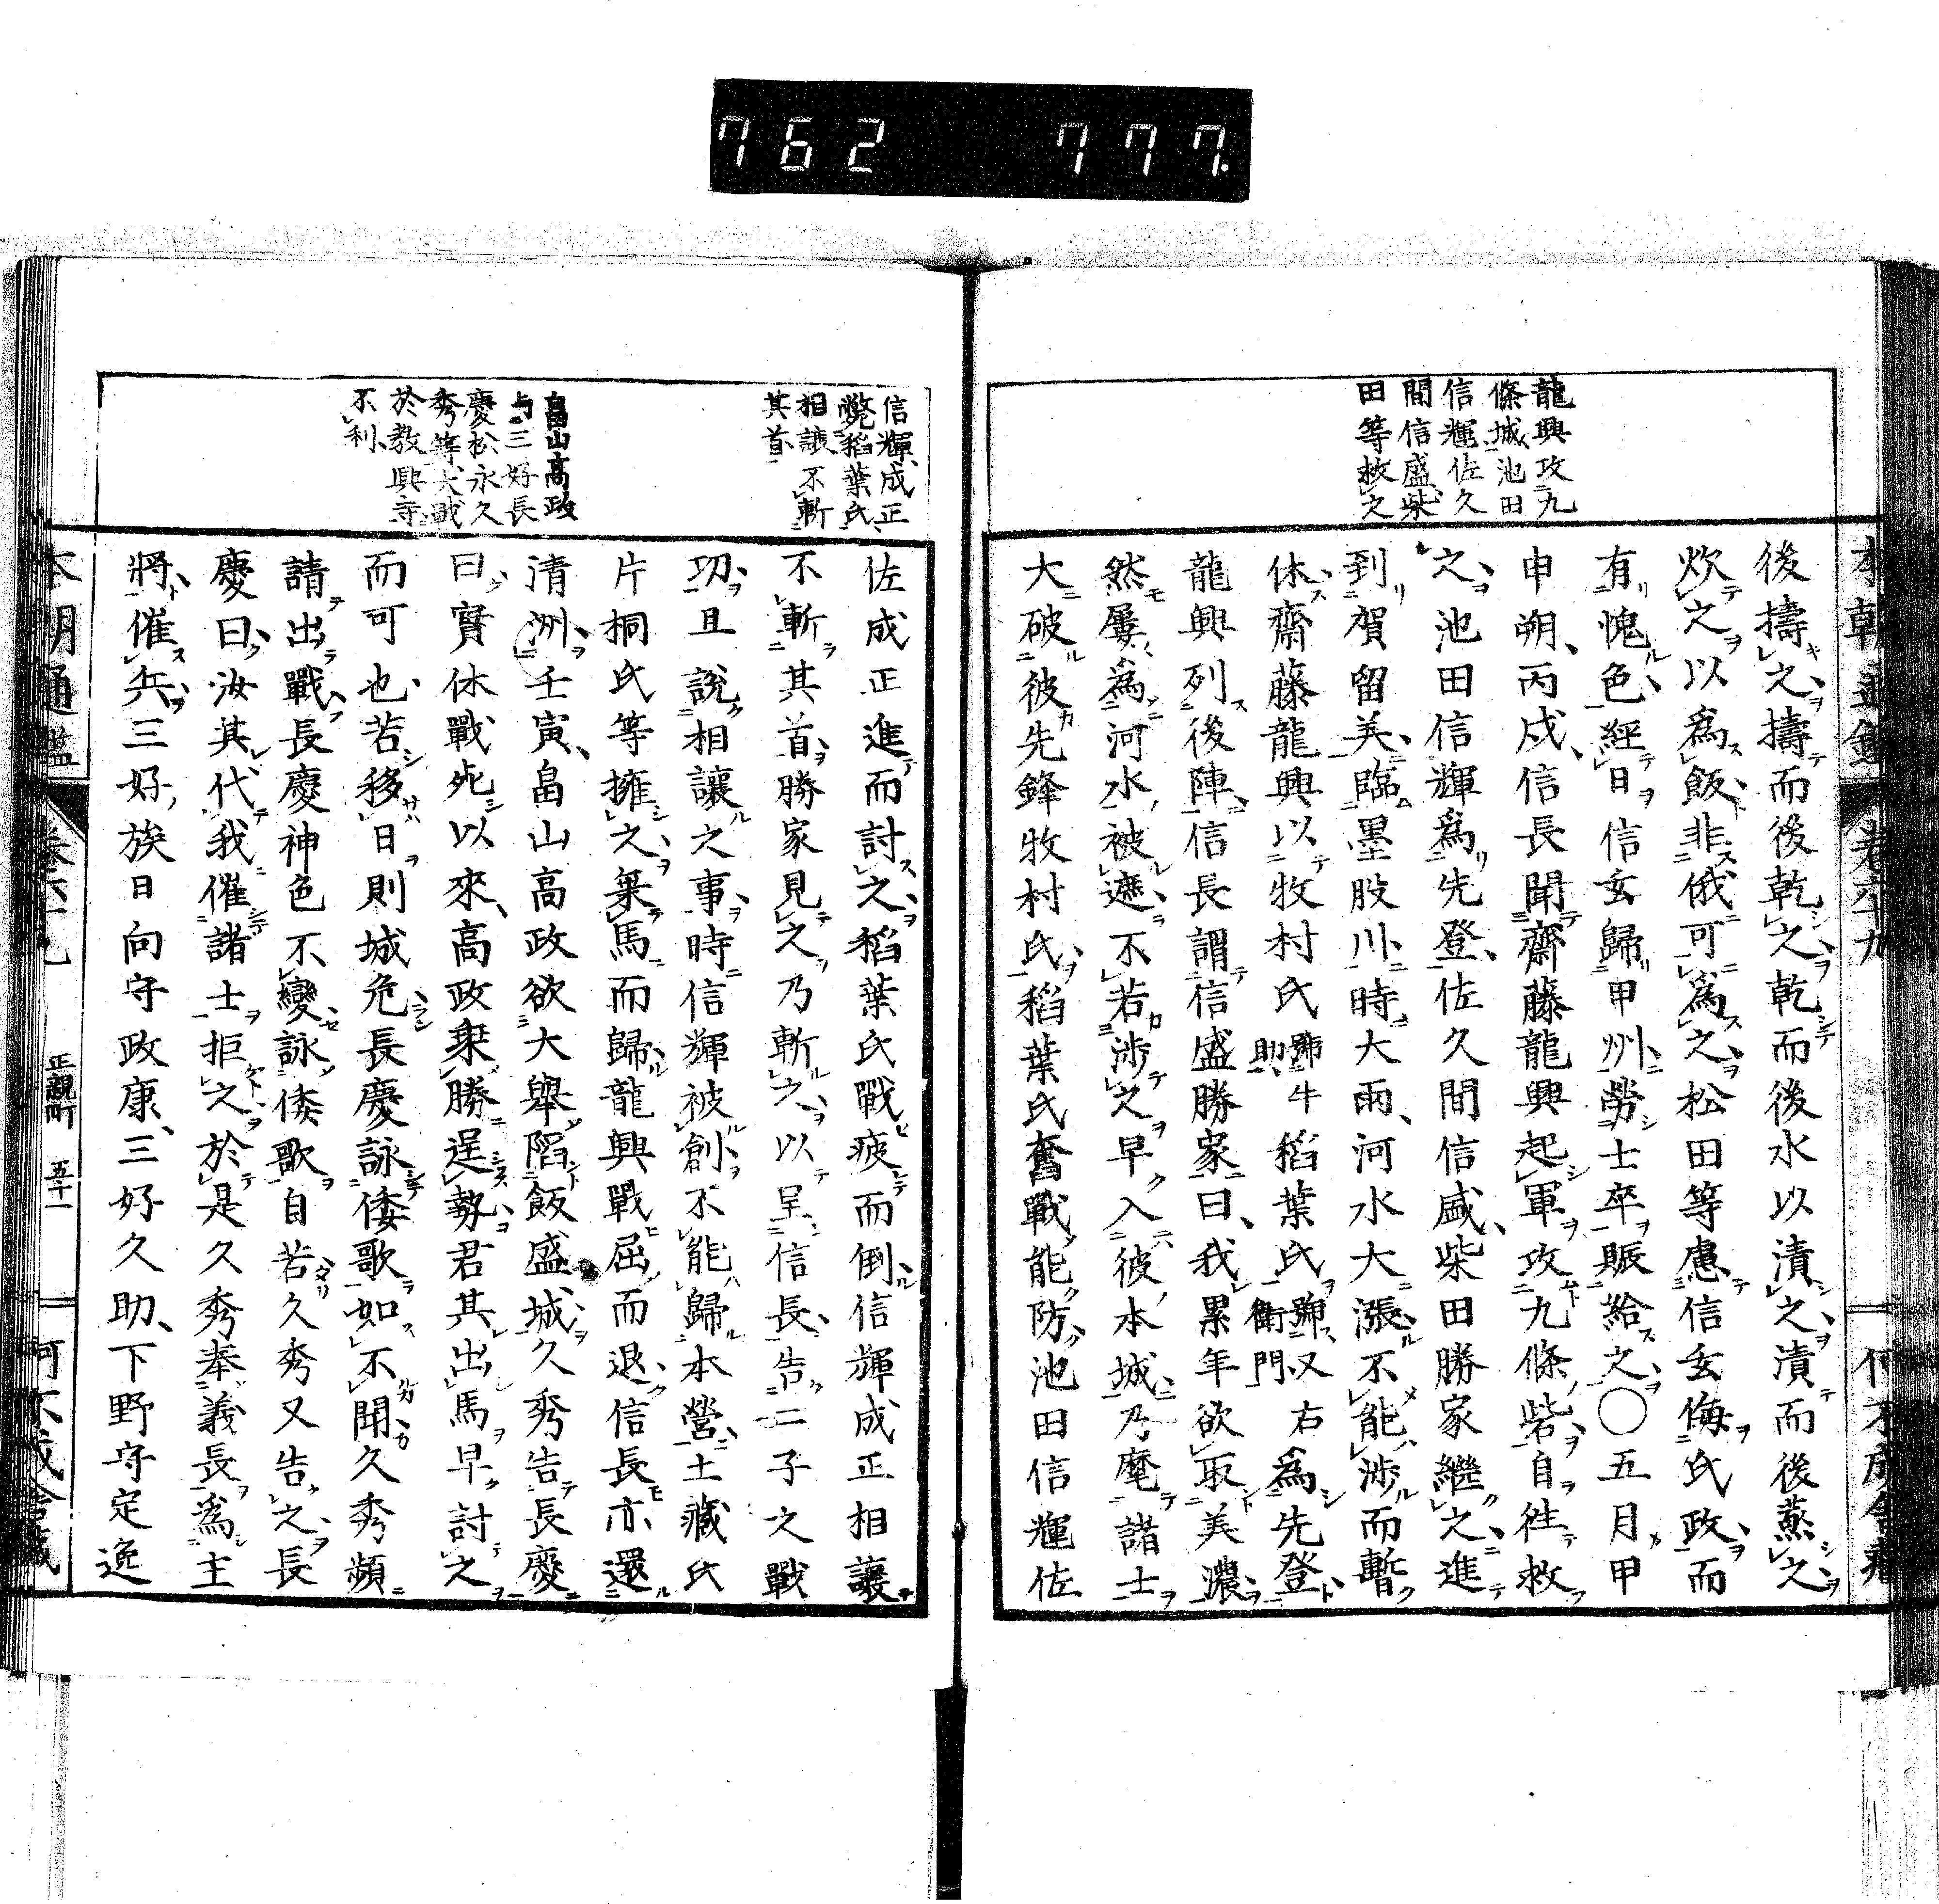 762 777.
龍興攻九
條城池田
信輝佐久
間信盛柴
田等救之
後擣之擣而後乾之乾而後水以漬之漬而後蒸之
炊之以爲飯非俄可爲之松田等慮信玄侮氏政而
有愧色經日信玄歸甲州勞士卒賑給之〇五月甲
申朔丙戌信長聞齋藤龍興起軍攻九條砦自往救
之池田信輝爲先登佐久間信盛柴田勝家繼之進
到賀留美臨墨股川時大雨河水大漲不能渉而暫
休齋藤龍興以牧村氏號牛助稻葉氏號又右衛門爲先登
龍興列後陣信長謂信盛勝家曰我累年欲取美濃
然屢爲河水被遮不若渉之早入彼本城乃麾諸士
大破彼先鋒牧村氏稻葉氏奮戰能防池田信輝佐
信輝成正
斃稻葉氏
相讓不斬
其首
畠山高政
与三好長
慶松永久
秀等大戰
於教興寺
不利
佐成正進而討之稻葉氏戰疲而倒信輝成正相讓
不斬其首勝家見之乃斬之以呈信長告二子之戰
功且說相讓之事時信輝被創不能歸本營土藏氏
片桐氏等擁之乗馬而歸龍興戰屈而退信長亦還
清洲壬寅畠山高政欲大舉陷飯盛城久秀告長慶
曰實休戰死以來高政乗勝逞勢君其出馬早討之
而可也若移日則城危長慶詠倭歌如不聞久秀頻
請出戰長慶神色不變詠倭歌自若久秀又告之長
慶曰汝其代我催諸士拒之於是久秀奉義長爲主
將催兵三好族日向守政康三好久助下野守定逸
本朝通鑑 卷六十九 正親町 五十一